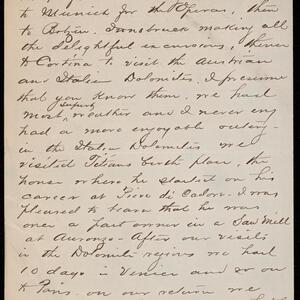 to Munich for the Operas, then
to Botzen. Innsbruck making all
the delightful excursions, thence
to Cortina to visit the Austrian
and Italian Dolomites. I presume
that you know them. we had
most superb weather and I never enj
had a more enjoyable outing.
in the Italian Dolomites we
visited Titians birth place, the
house where he started on his
career at Pieve di Cadore. I was
pleased to learn that he was
once a part owner in a Saw Mill
at Auronzo. After our visits
in the Dolomite regions we had
10 days in Venice and so on
to Paris. on our return we